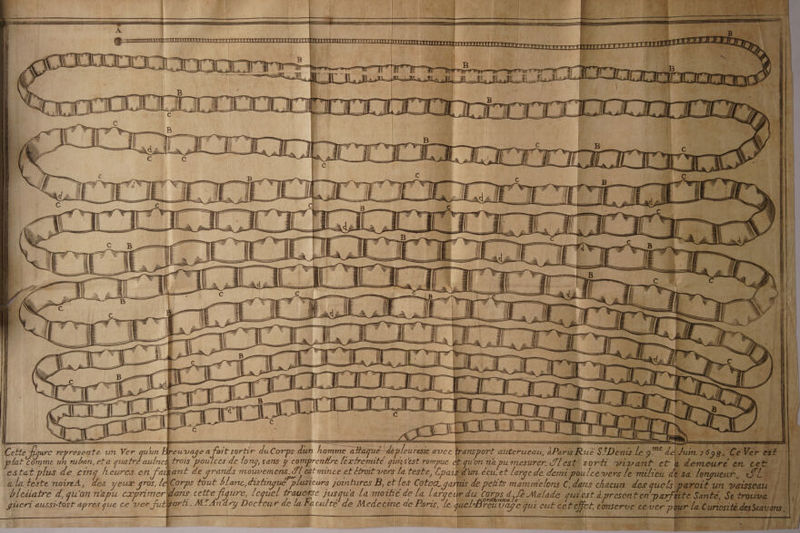 A
B
Cette figure represente un Ver qu'un Breuvage a fait sortir du Corps d'un homme attaqué de pleuresie avec transport au cerveau, à Paris Ruë St Denis le 9me de Juin 1698. Ce Ver est
plat comme un ruban, et a quatre aulnes trois poulces de long, sans y comprendre l'extremité qui s'est rompue et qu'on n'a pu mesurer. Il est sorti vivant et a demeuré en cet
estat plus de cinq heures en faisant de grands mouvemens. Il est mince et étroit vers la teste, Epais d'un écu et large de demi poulce vers le milieu de sa longueur, Il
a la teste noire A, des yeux gros, le Corps tout blanc, distingué par plusieurs jointures B, et les Cotez garnis de petits mammelons C, dans chacun desquels paroit un vaisseau
bleüatre d, qu'on n'a pu exprimer dans cette figure, lequel traverse jusqu'à la moitié de la largeur du Corps d. Le Malade qui est à present en parfaite Santé, Se trouva
gueri aussi-tost apres que ce ver fut sorti. Mr Andry Docteur de la Faculté de Medecine de Paris, le quel ordonna le Breuvage qui eut cet effet, conserve ce ver pour la Curiosité des Scavans.